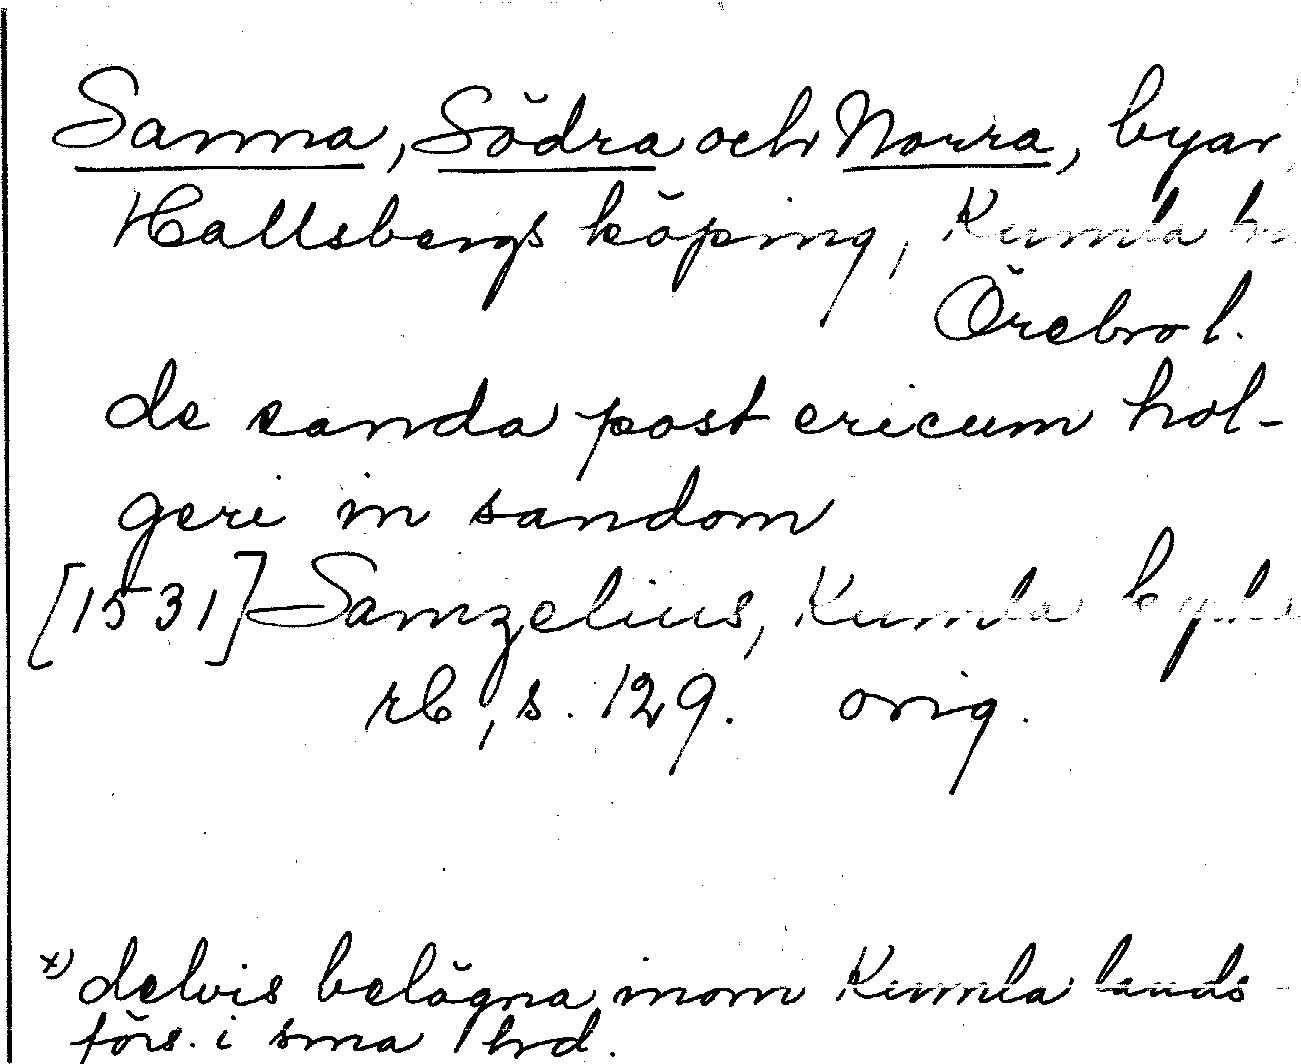 Sanna, Södra och Norra, byar
Hallsbergs köping, Kumla h
Örebro l.
de sanda post ericum hol-
geri in sandom
[1531] Samzelius, Kumla
rb, s. 129. orig.
x) delvis belägna inom Kumla lands-
förs. i sma hrd.